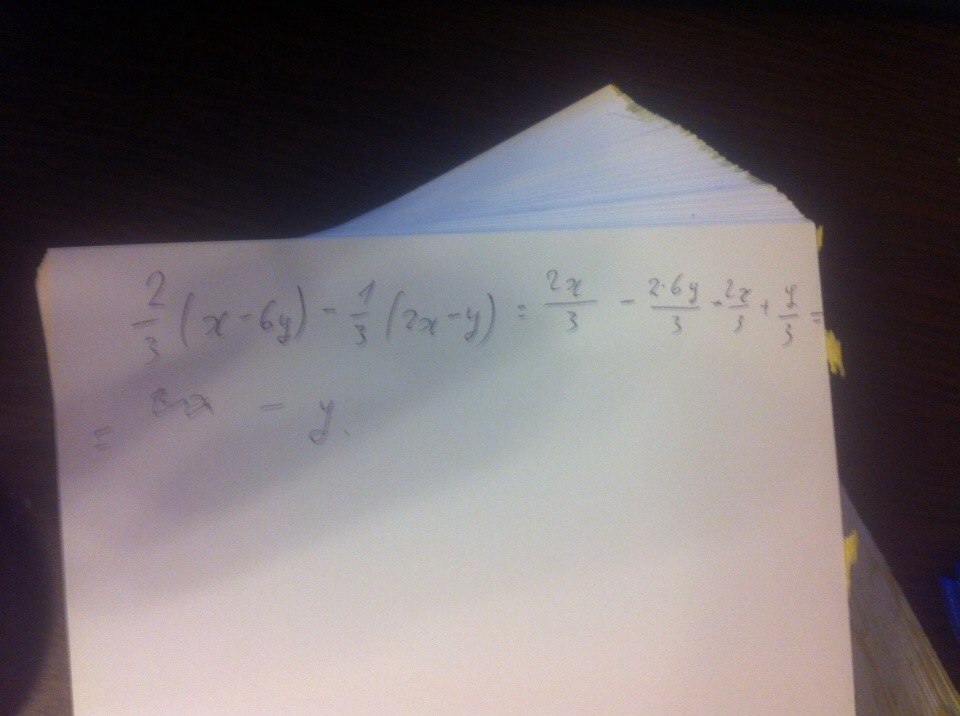 2/3 (x - 6y) - 1/3 (2x - y) = 2x/3 - 2·6y/3 - 2x/3 + y/3 =
= - y.